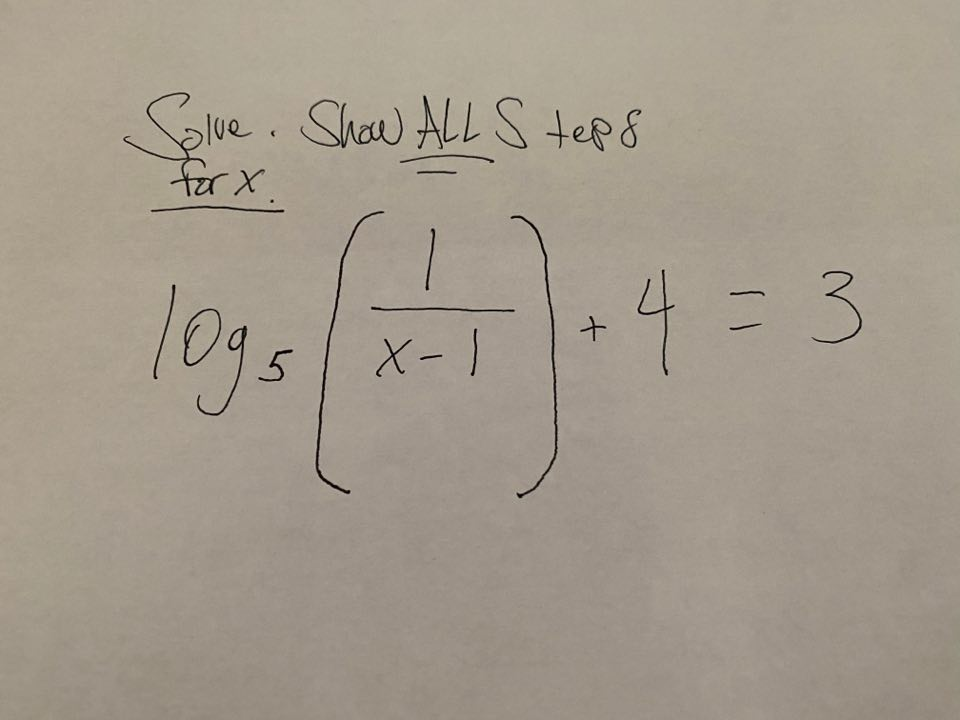 Solve. Show ALL Steps
for x.
log₅ (1/(x-1)) + 4 = 3